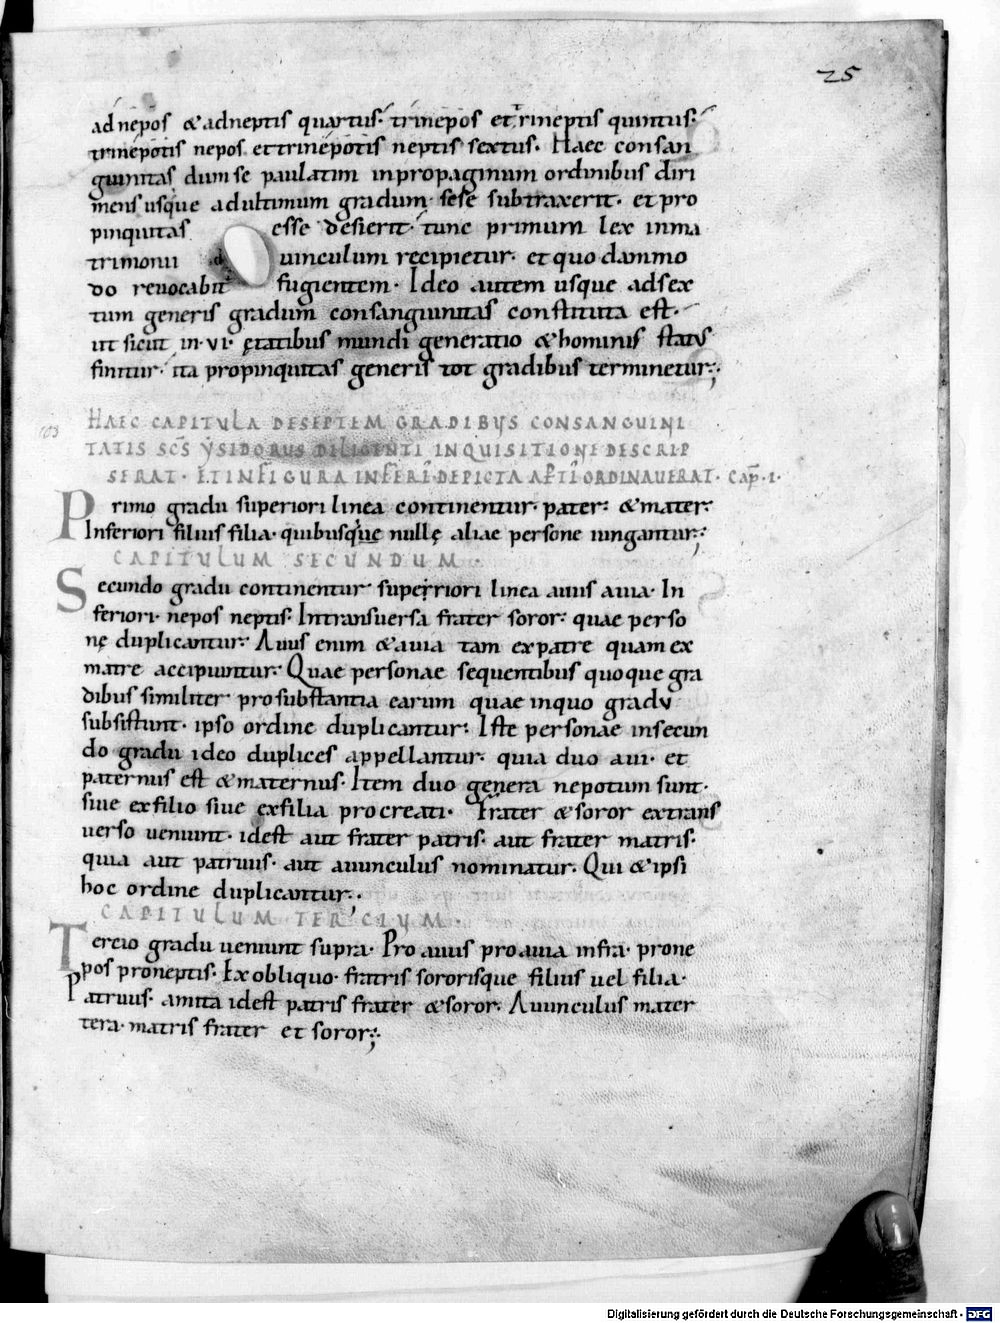 25
adnepos & adneptis quartus. trinepos et trineptis quintus.
trinepotis nepos. et trinepotis neptis sextus. Haec consan
guinitas dum se paulatim in propaginum ordinibus diri
mens usque ad ultimum gradum. sese subtraxerit. et pro
pinquitas esse desierit. tunc primum lex in ma
trimonii uinculum recipietur. et quodammo
do reuocabit fugientem. Ideo autem usque ad sex
tum generis gradum consanguinitas constituta est.
ut sicut in .vi. ętatibus mundi generatio & hominis status
finitur. ita propinquitas generis tot gradibus terminetur;
103
HAEC CAPITULA DE SEPTEM GRADIBUS CONSANGUINI
TATIS SCS YSIDORUS DILIGENTI INQUISITIONE DESCRIP
SERAT. ET IN FIGURA INFERI DEPICTA APTI ORDINAUERAT. Cap. I.
Primo gradu superiori linea continentur. pater. & mater.
Inferiori filius filia. quibusque nullę aliae persone iungantur;
CAPITULUM SECUNDUM.
Secundo gradu continentur superriori linea auus auia. In
feriori. nepos neptis. In transuersa frater soror. quae perso
nę duplicantur. Auus enim & auia tam ex patre quam ex
matre accipiuntur. Quae personae sequentibus quoque gra
dibus similiter pro substantia earum quae in quo gradu
subsistunt. ipso ordine duplicantur. Iste personae in secun
do gradu ideo duplices appellantur. quia duo aui. et
paternus est & maternus. Item duo genera nepotum sunt.
siue ex filio siue ex filia procreati. Frater & soror ex trans
uerso ueniunt. id est aut frater patris. aut frater matris.
quia aut patruus. aut auunculus nominatur. Qui & ipsi
hoc ordine duplicantur.
CAPITULUM TERCIUM.
Tercio gradu ueniunt supra. Pro auus pro auia infra. prone
pos proneptis. Ex obliquo. fratris sororisque filius uel filia.
Patruus. amita id est patris frater & soror. Auunculus mater
tera. matris frater et soror;
Digitalisierung gefördert durch die Deutsche Forschungsgemeinschaft - DFG